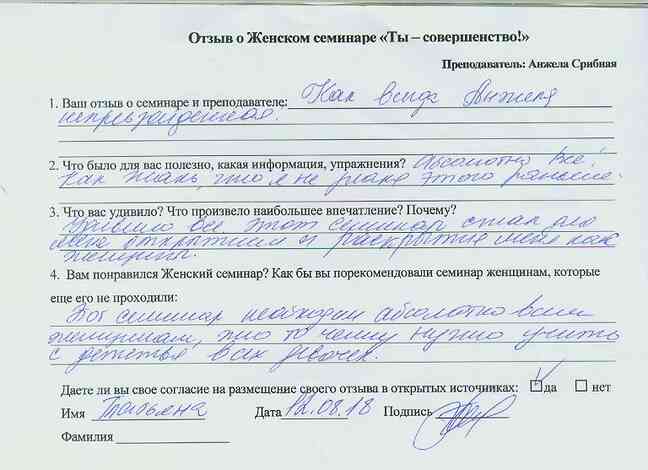 Отзыв о Женском семинаре «Ты – совершенство!»
Преподаватель: Анжела Срибная
1. Ваш отзыв о семинаре и преподавателе: Как всегда Анжела
непревзойденная.
2. Что было для вас полезно, какая информация, упражнения? Абсолютно все!
Как жаль, что я не знала этого раньше.
3. Что вас удивило? Что произвело наибольшее впечатление? Почему?
Удивило все этот семинар стал для
меня открытием и раскрытие меня как
женщины.
4. Вам понравился Женский семинар? Как бы вы порекомендовали семинар женщинам, которые
еще его не проходили:
Этот семинар необходим абсолютно всем
женщинам, это то чему нужно учить
с детства всех девочек.
Даете ли вы свое согласие на размещение своего отзыва в открытых источниках: да нет
Имя Татьяна Дата 12.08.18 Подпись
Фамилия